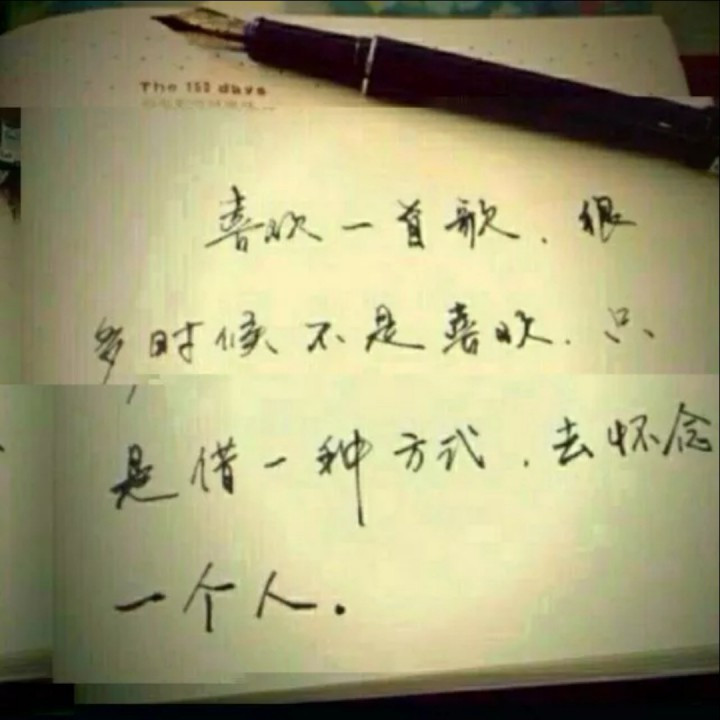 The 150 days
喜欢一首歌.很
多时候不是喜欢.只
是借一种方式.去怀念
一个人.